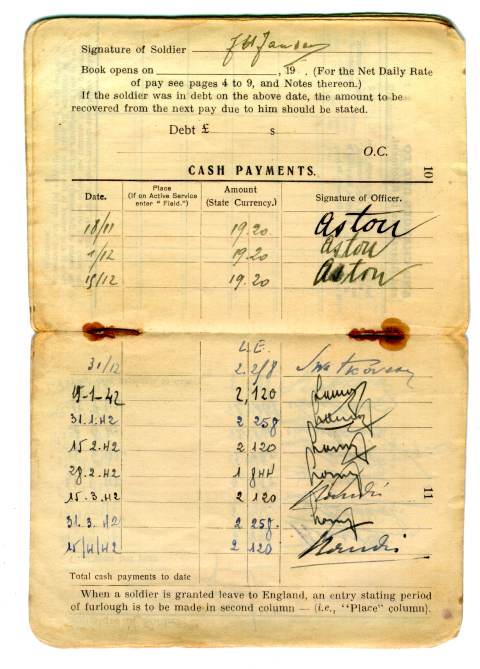 Signature of Soldier
Book opens on , 19 . (For the Net Daily Rate
of pay see pages 4 to 9, and Notes thereon.)
If the soldier was in debt on the above date, the amount to be
recovered from the next pay due to him should be stated.
Debt £ s
O.C.
10
CASH PAYMENTS.
Date. Place (If on Active Service enter "Field.") Amount (State Currency.) Signature of Officer.
18/11 19.20 Aston
1/12 19.20 Aston
15/12 19.20 Aston
L.E.
31/12 2 258
15-1-42 2,120
31.1.42 2 258
15.2.42 2 120
28.2.42 1 844
15.3.42 2 120
11
31.3.42 2 258.
15/4/42 2 120
Total cash payments to date
When a soldier is granted leave to England, an entry stating period
of furlough is to be made in second column — (i.e., "Place" column).